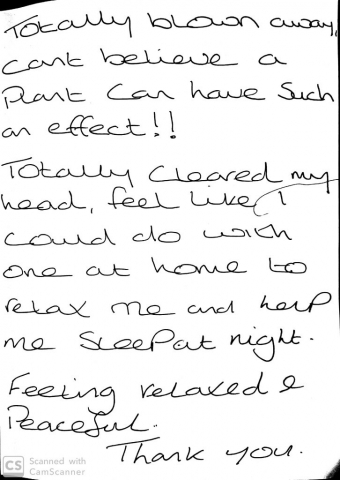 Totally blown away,
cant believe a
plant can have such
an effect!!
Totally cleared my
head, feel like I
could do with
one at home to
relax me and help
me sleep at night.
Feeling relaxed &
Peaceful.
Thank you.
CS Scanned with
CamScanner